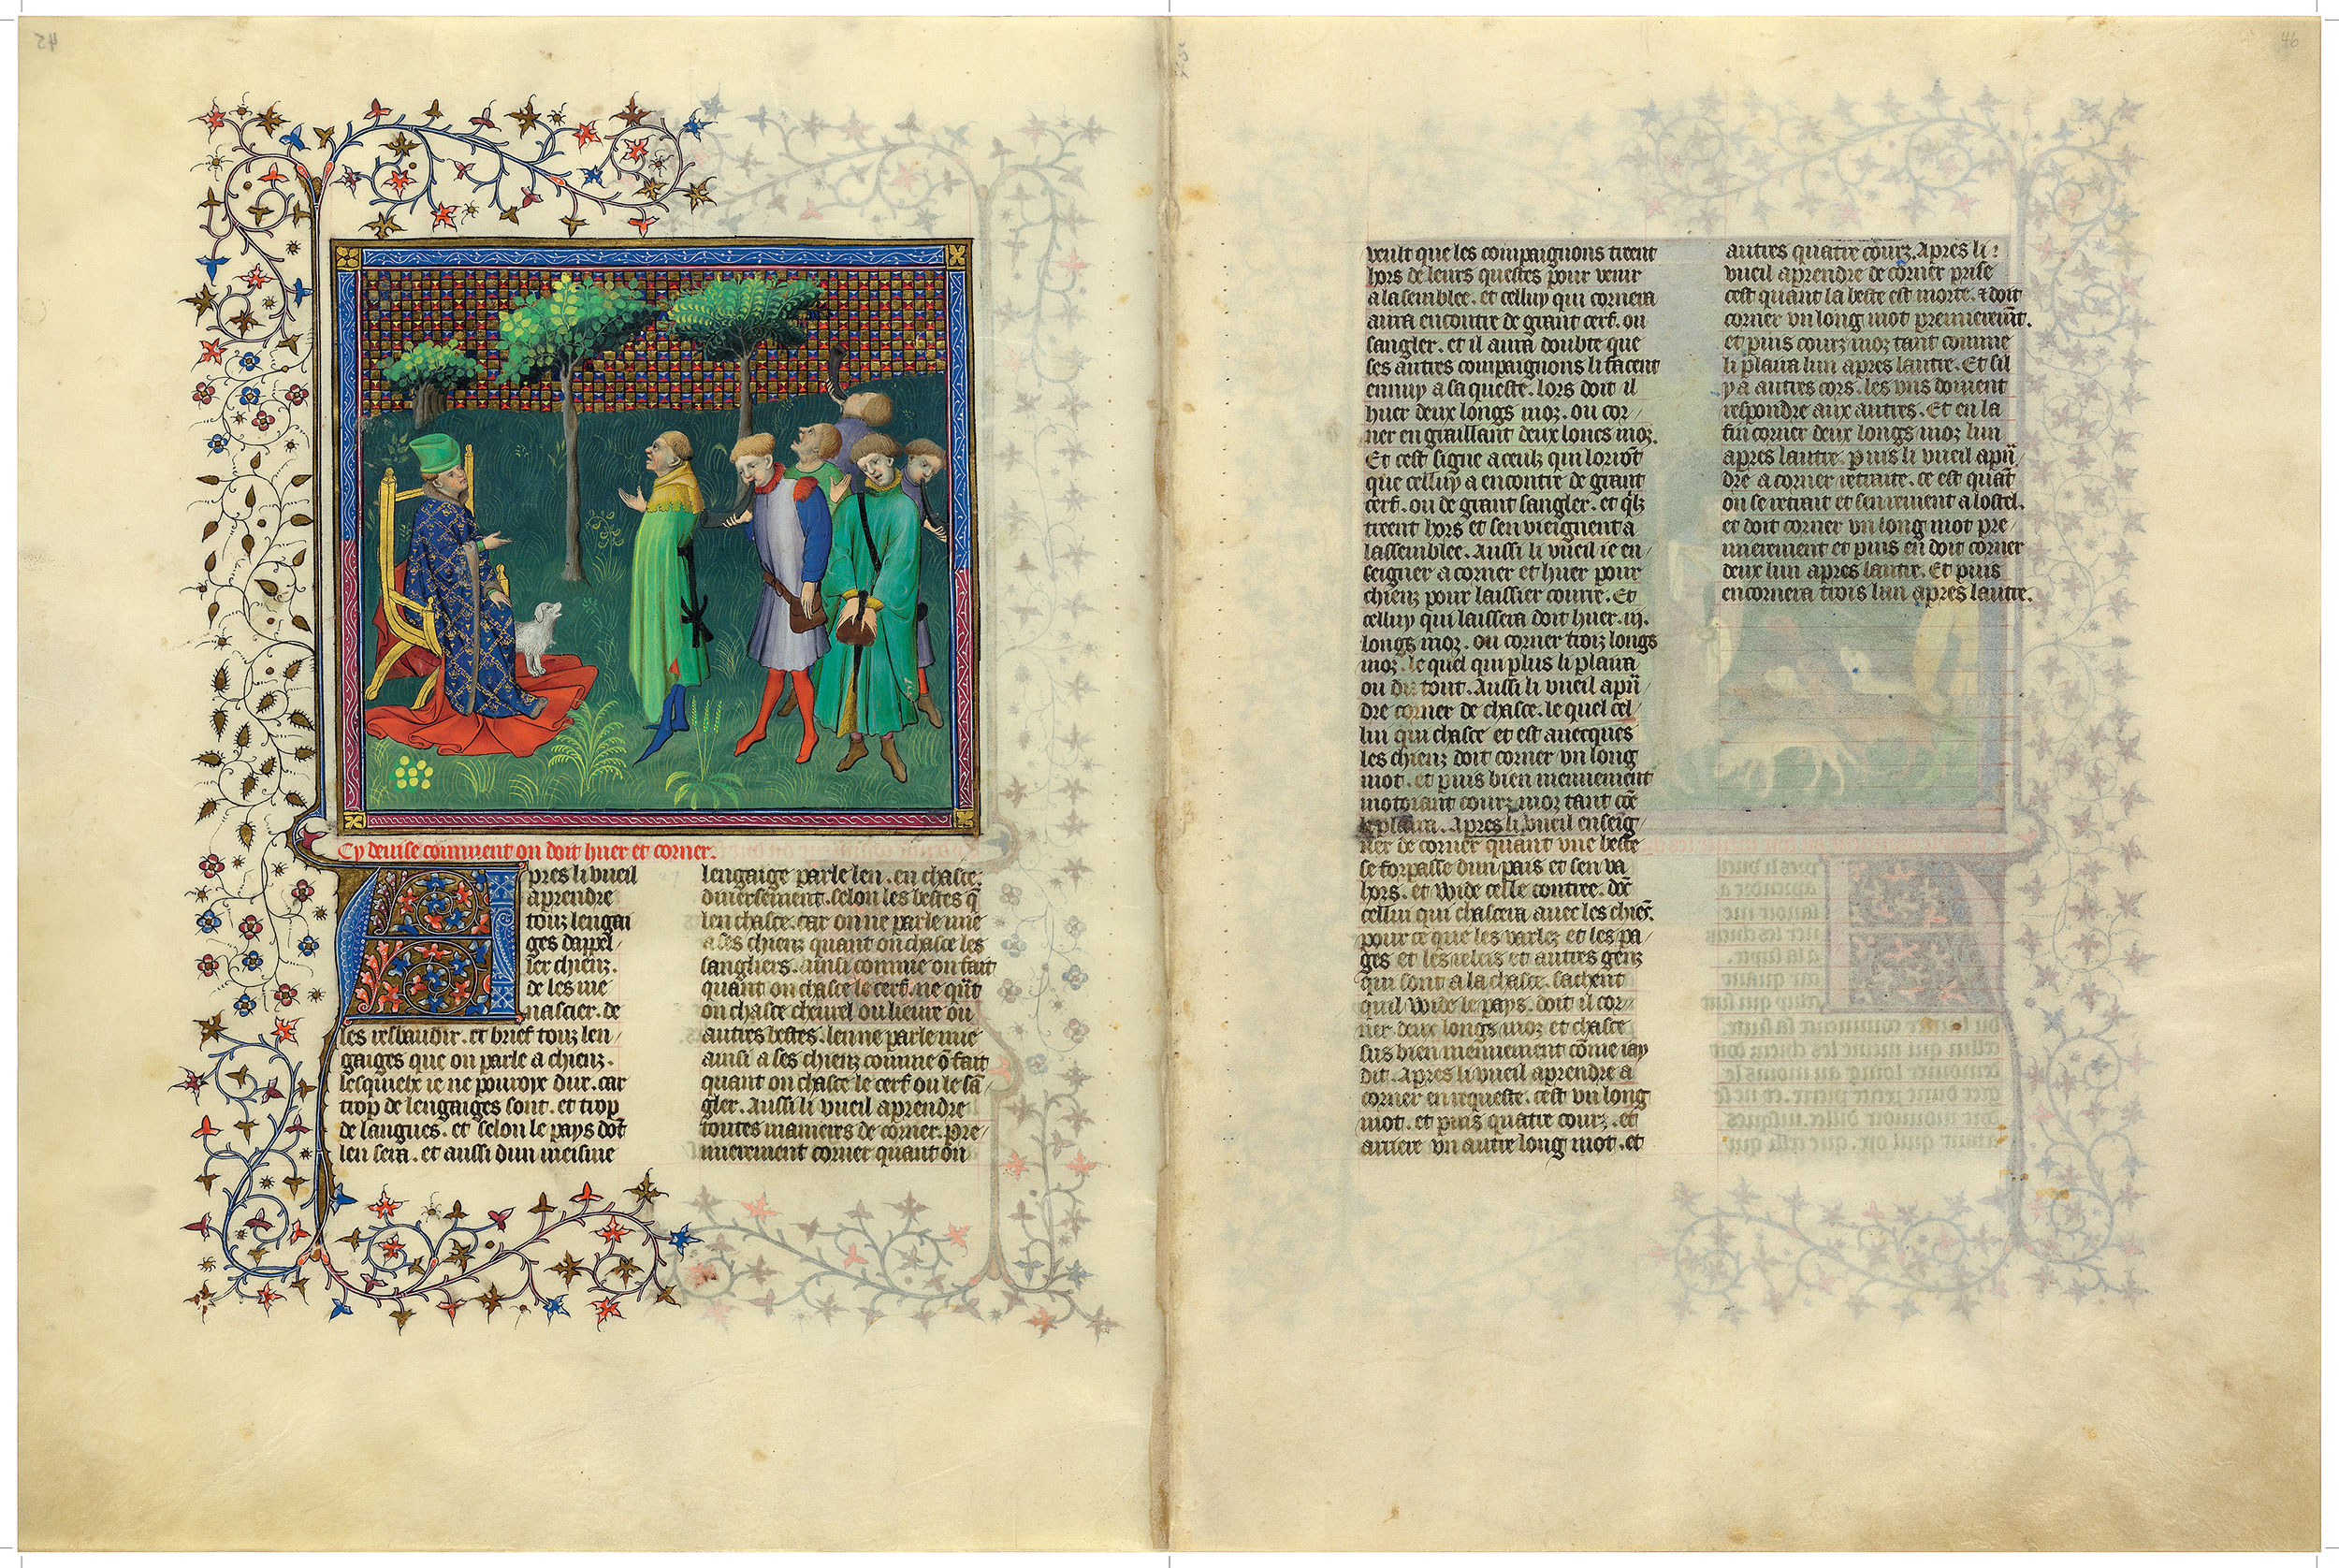 45
Cy deuise comment on doit huer et corner.
Apres li vueil
aprendre
touz lengai
ges dappel/
ler chienz.
de les me
nascier. de
les resbaudir. et brief touz len/
gaiges que on parle a chienz.
lesquielx ie ne pouroye dire. car
trop de lengaiges sont. et trop
de langues. et selon le pays dōt
len sera. et aussi dun meisme
lengaige parle len. en chasce.
diuersement. selon les bestes q̄
len chasce. car on ne parle mie
a ses chienz quant on chasce les
sangliers. ainsi comme on fait
quant on chasce le cerf. ne qūt
on chasce cheurel ou lieure ou
autres bestes. len ne parle mie
ainsi a ses chienz comme ō fait
quant on chasce le cerf ou le sā/
gler. Aussi li vueil aprendre
toutes manieres de corner. pre/
mierement corner quant on
46
veult que les compaignons tirent
hors de leurs questes pour venir
a la semblee. et celluy qui cornera
aura encontre de grant cerf. ou
sangler. et il aura doubte que
ses autres compaignons li facent
ennuy a sa queste. lors doit il
huer deux longs moz. ou cor/
ner en graillant deux loncs moz.
Et cest signe a ceulz qui lorrōt
que celluy a encontre de grant
cerf. ou de grant sangler. et qlz
tirent hors et sen vieignent a
lassemblee. Aussi li vueil ie en/
seigner a corner et huer pour
chienz pour laissier courre. Et
celluy qui laissera doit huer .iij.
longs moz. ou corner troiz longs
moz. le quel qui plus li plaira
ou du tout. Aussi li vueil apn̄/
dre corner de chasce. le quel cel/
lui qui chasce et est auecques
les chienz doit corner vn long
mot. et puis bien menuement
motoiant courz moz tant cōe
li plaira. Apres li vueil enseig/
ner de corner quant vne beste
se forpasse dun pais et sen va
hors. et wide celle contree. dōt
cellui qui chascera auec les chiēs.
pour ce que les varlez et les pa/
ges et les relais et autres genz
qui sont a la chasce. sachent
quil wide le pays. doit il cor/
ner deux longs moz et chasce
sus bien menuement cōme iay
dit. Apres li vueil aprendre a
corner en requeste. cest vn long
mot. et puis quatre courz. et
arriere vn autre long mot. et
autres quatre courz. Apres li
vueil aprendre de corner prise
cest quant la beste est morte. et doit
corner vn long mot premieremt̄.
et puis courz moz tant comme
li plaira lun apres lautre. Et sil
y a autres cors. les vns doiuent
respondre aux autres. Et en la
fin corner deux longs moz lun
apres lautre. puis li vueil apn̄/
dre a corner retraite. ce est quāt
on se retrait et sen reuient a lostel.
et doit corner vn long mot pre/
mierement et puis en doit corner
deux lun apres lautre. Et puis
en cornera trois lun apres lautre.